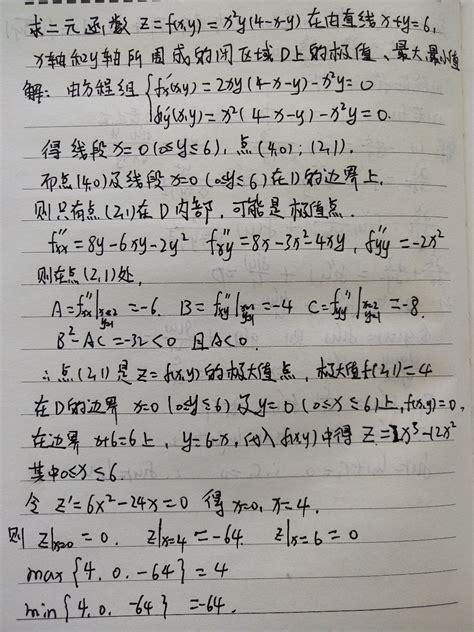 求二元函数 z=f(x,y)=x²y(4-x-y)在由直线x+y=6,
x轴和y轴所围成的闭区域D上的极值、最大最小值
解：由方程组{f'x(x,y)=2xy(4-x-y)-x²y=0
f'y(x,y)=x²(4-x-y)-x²y=0.
得线段x=0(0≤y≤6),点(4,0);(2,1).
而点(4,0)及线段x=0(0≤y≤6)在D的边界上.
则只有点(2,1)在D内部,可能是极值点.
f''xx=8y-6xy-2y² f''xy=8x-3x²-4xy, f''yy=-2x²
则在点(2,1)处,
A=f''xx|x=2 y=1=-6. B=f''xy|x=2 y=1=-4 C=f''yy|x=2 y=1=-8.
B²-AC=-32<0 且A<0.
∴点(2,1)是z=f(x,y)的极大值点,极大值f(2,1)=4
在D的边界x=0(0≤y≤6)及y=0(0≤x≤6)上,f(x,y)=0,
在边界x+6=6上,y=6-x,代入f(x,y)中得z=2x³-12x²
其中0≤x≤6.
令z'=6x²-24x=0 得x=0,x=4.
则z|x=0=0. z|x=4=-64. z|x=6=0
max{4,0,-64}=4
min{4,0,-64}=-64.